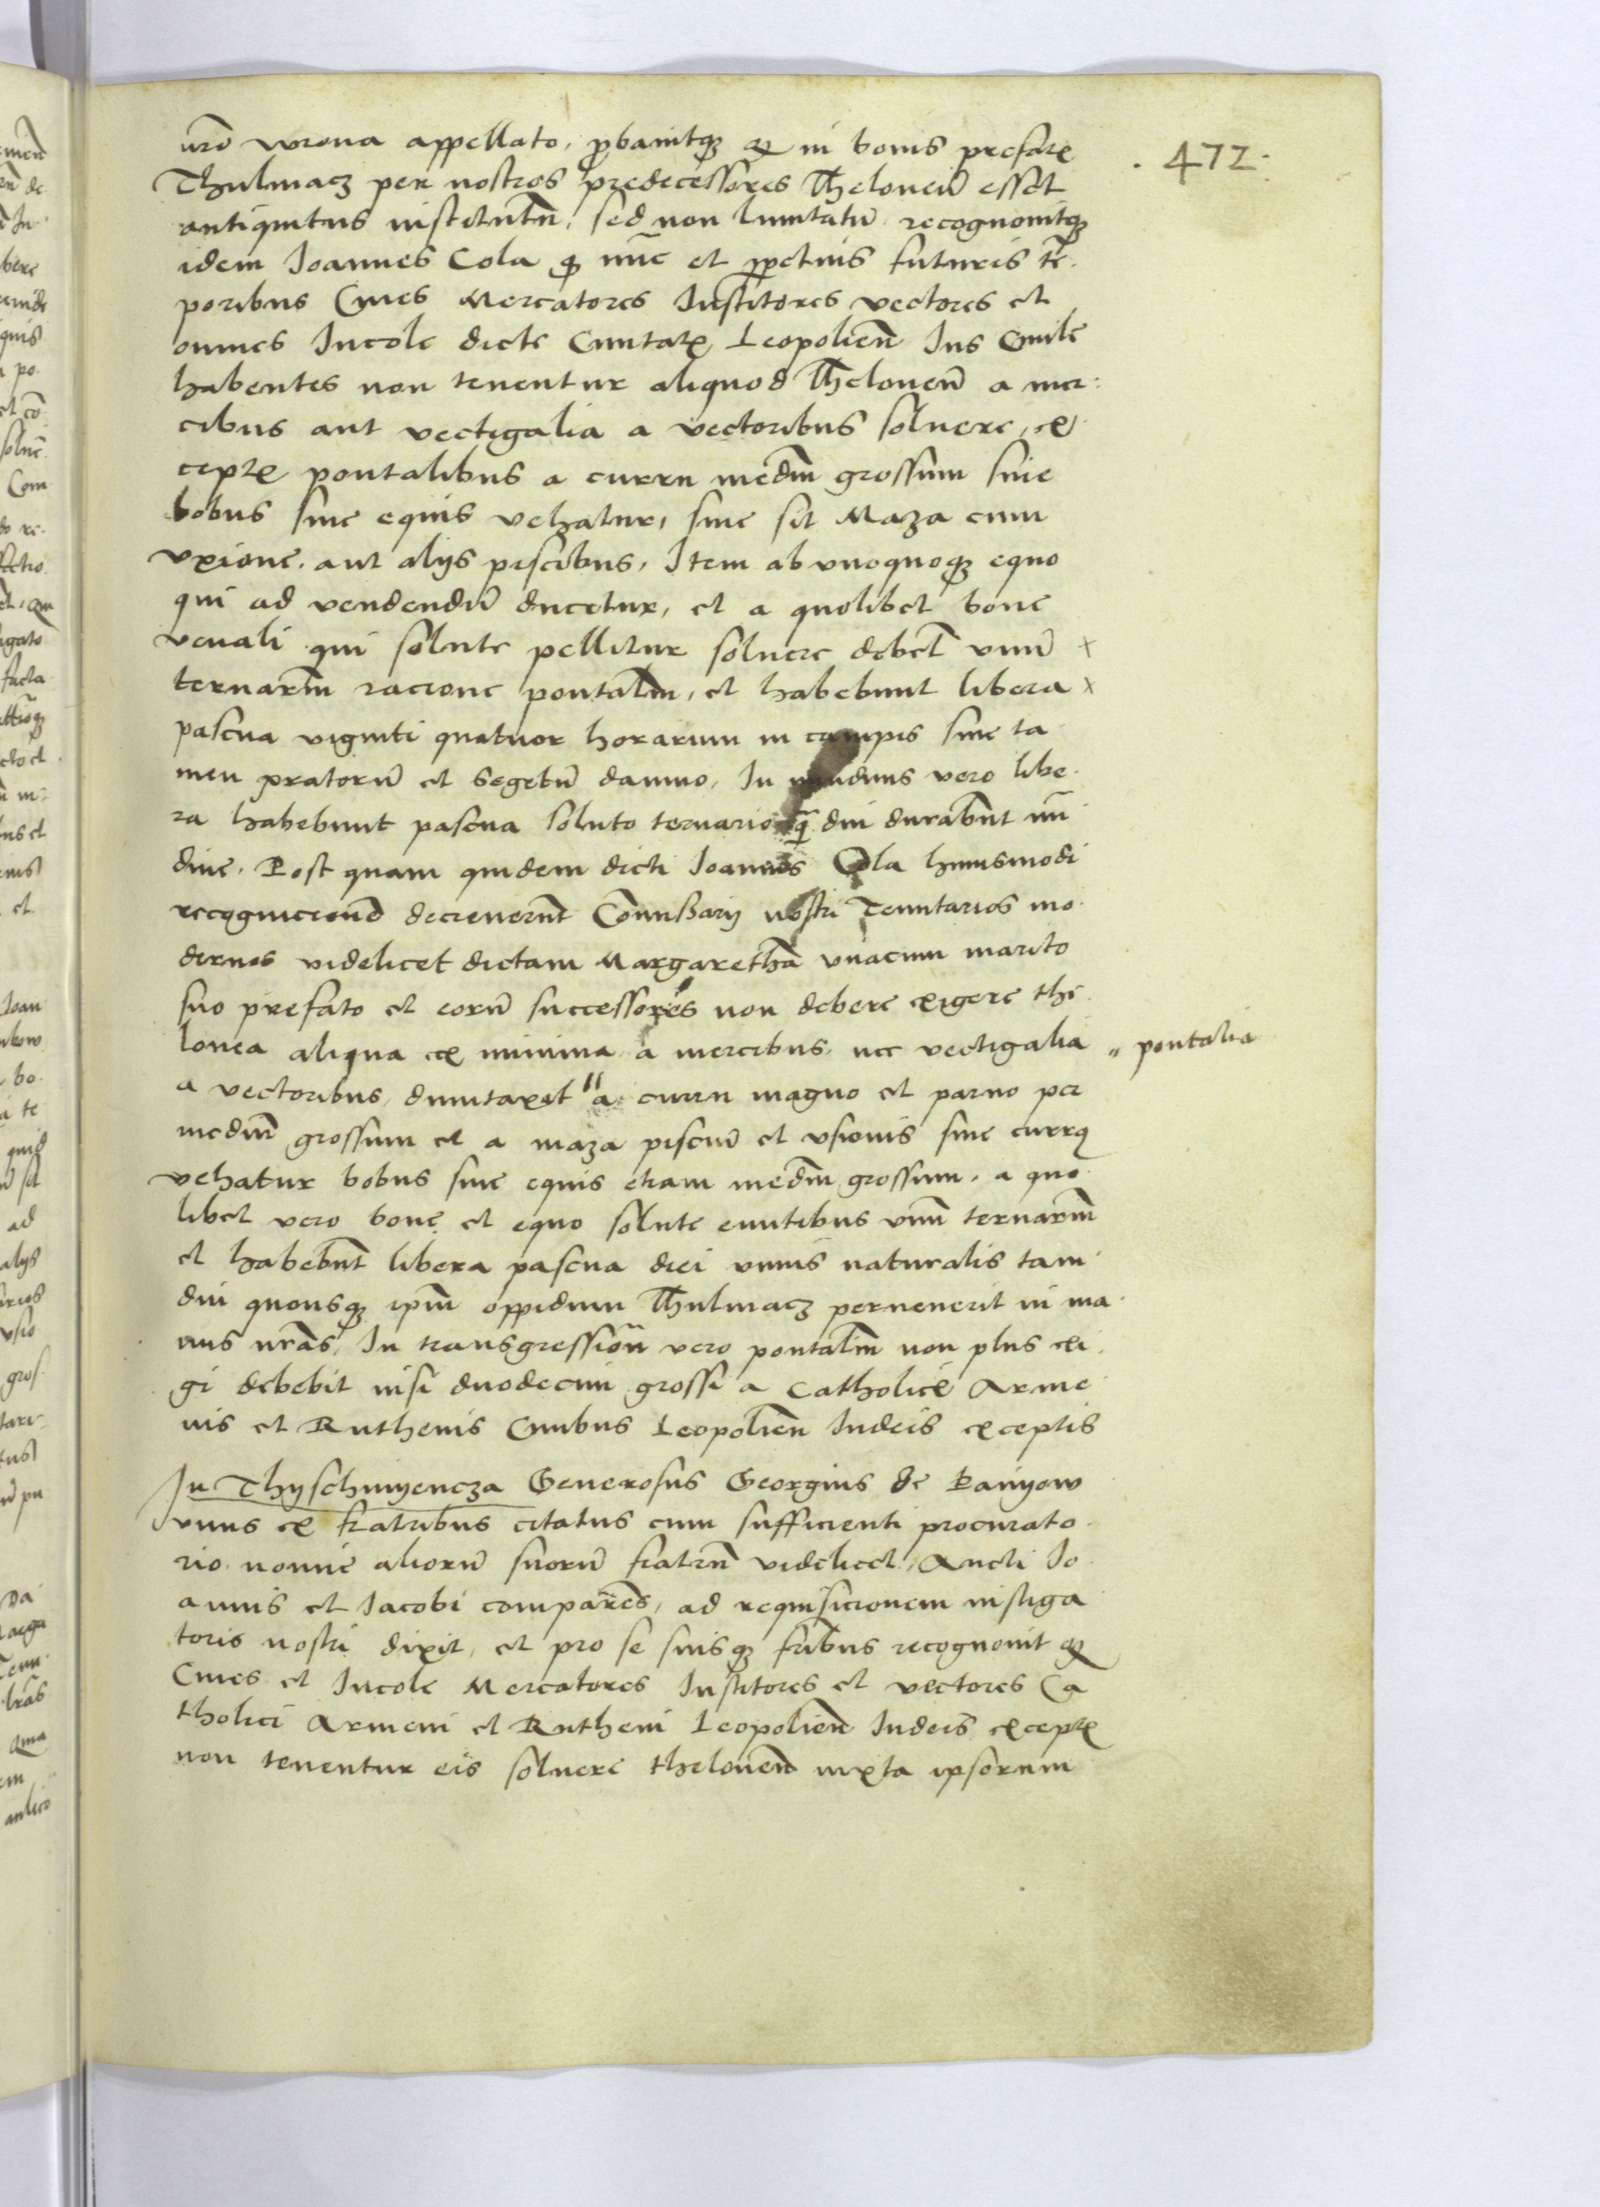 nrō wrona appellato, ꝓbauitqꝫ ꝙ in bonis prefatꝭ
.472.
Thulmacz per nostros predecessores Theloneū esset
antiquitus institutū, sed non limitatū recognouitqꝫ
idem Joannes Cola ꝙ nūc et ꝑpetuis futuris tē
poribus Ciues Mercatores Institores vectores et
omnes Incole dicte Ciuitatꝭ Leopolieñ Ius Ciuile
habentes non tenentur aliquod Theloneū a mer
cibus aut vectigalia a vectoribus soluere, ex
ceptꝭ pontalibus a curru mediū grossum siue
bobus siue equis vehatur, siue sit Maza cum
vxione, aut alijs piscibus, Item ab vnoquoqꝫ equo
qui ad vendendū ducetur, et a quolibet boue
venali qui solute pellitur soluere debet vnū x
ternariū racione pontaliū, et habebunt libera x
pascua viginti quatuor horarum in campis sine ta
men pratorū et segetū damno, In nundinis vero libe
ra habebunt pascua soluto ternario ꝗ̄ diu durabūt nū
dine. Post quam quidem dicti Joannis Cola huiusmodi
recognicionē decreuerūt Cōmissarij nostri Tenutarios mo
dernos videlicet dictam Margarethā vnacum marito
suo prefato et eorū successores non debere exigere the
lonea aliqua ex minima a mercibus, nec vectigalia " pontalia
a vectoribus, dumtaxat " a curru magno et paruo per
mediū grossum et a maza pisciū et vsionis siue curruꝫ
vehatur bobus siue equis etiam mediū grossum, a quo
libet vero boue et equo solute euntibus vnū ternariū
et habebūt libera pascua diei vnius naturalis tam
diu quousqꝫ ipm̄ oppidum Thulmacz peruenerit in ma
nus nrās, In transgressioñ vero pontaliū non plus exi
gi debebit nisi duodecim grossi a Catholicꝭ Arme
nis et Ruthenis Ciuibus Leopolieñ Iudeis exceptis
In Thyschmyencza Generosus Georgius de Banyow
vnus ex fratribus citatus cum sufficienti procurato
rio nomīe aliorū suorū fratrū videlicet, Aucti Jo
annis et Jacobi comparēs, ad requisicionem instiga
toris nostri dixit, et pro se suisqꝫ frībus recognouit ꝙ
Ciues et Incole Mercatores Institores et vectores Ca
tholici Armeni et Rutheni Leopolieñ Iudeis exceptꝭ
non tenentur eis soluere theloneū iuxta ipsorum